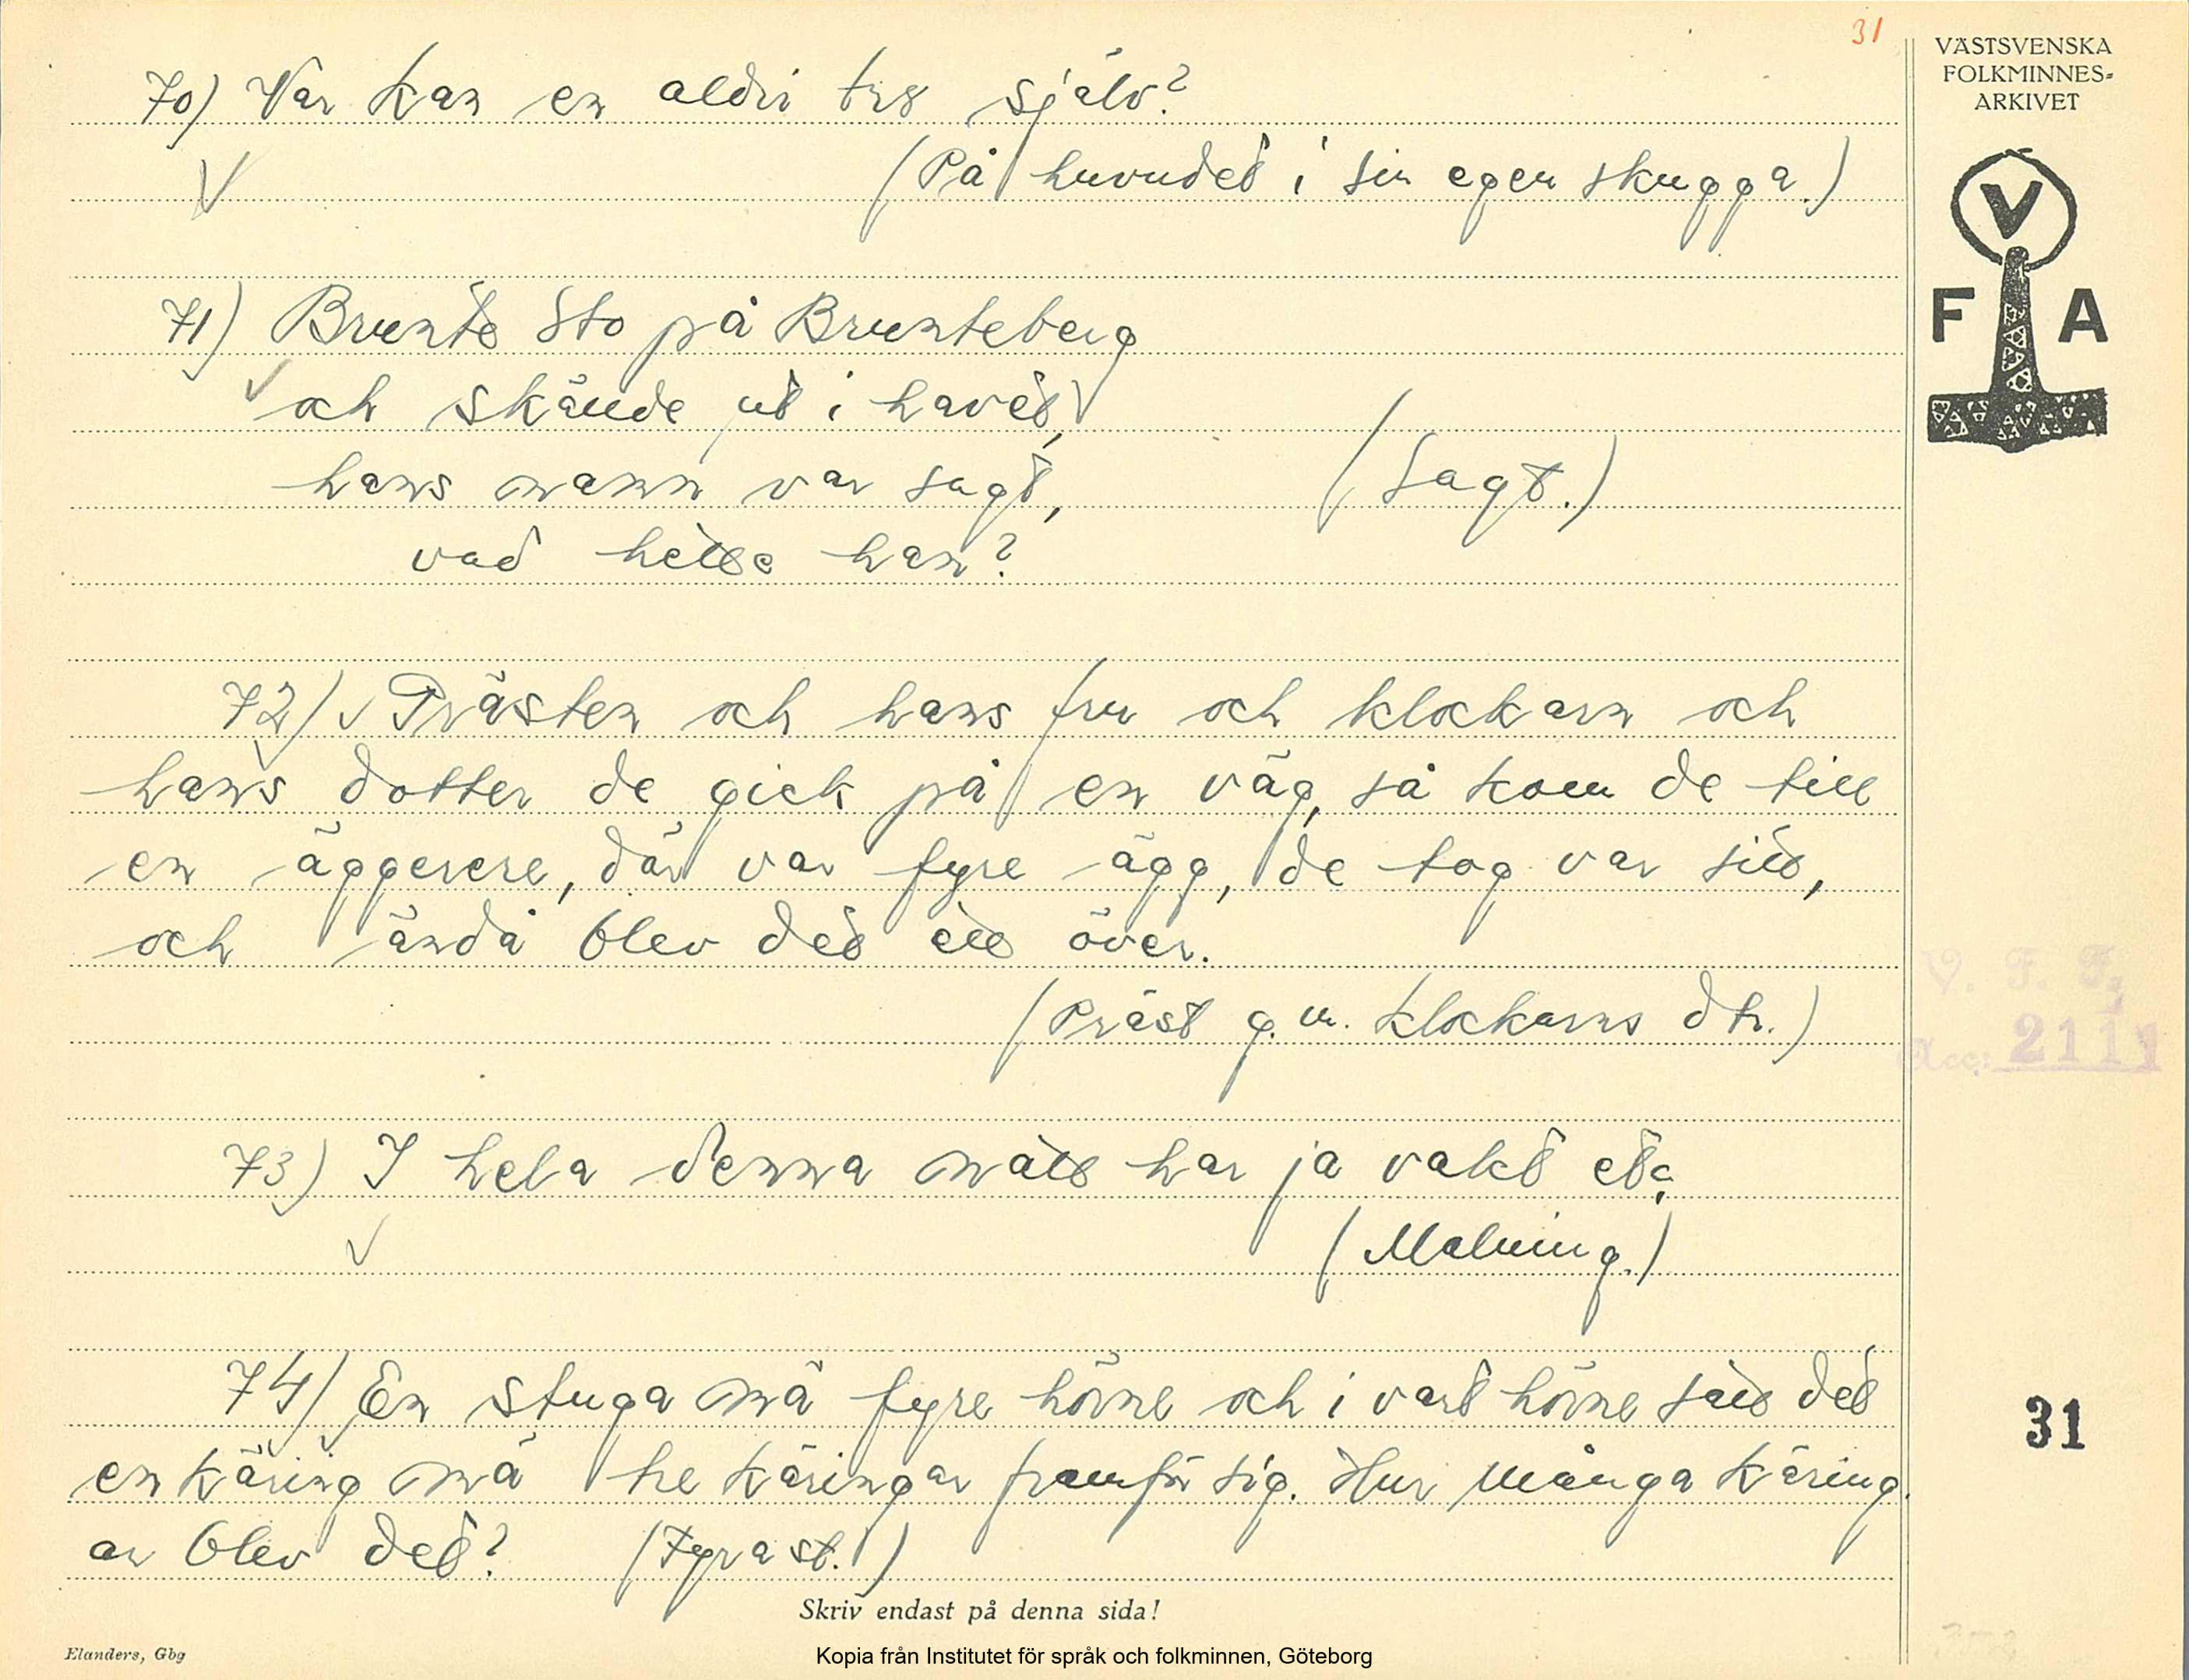 31
VÄSTSVENSKA
FOLKMINNES-
ARKIVET
V
F A
70) Var kan en aldri tro själv?
(På huvudet i sin egen skugga.)
71) Brunte sto på Brunteberg
och skånde ut i havet,
hans namn var sagt,
(Sagt.)
vad hette han?
72) Prästen och hans fru och klockarn och
hans dotter de gick på en väg, så kom de till
en äggerere, där var fyre ägg, de tog var sitt,
och ändå blev det ett över.
(Präst g.m. klockarns dtr.)
V. F. F.
Acc: 2111
73) I hela denna natt har ja vakt
(Malning.)
74) En stuga mä fyre hörne och i vart hörne satt det
en käring mä tre käringar framför sig. Hur många käring
ar blev det? (Fyra st.)
31
Skriv endast på denna sida!
Elanders, Gbg
Kopia från Institutet för språk och folkminnen, Göteborg